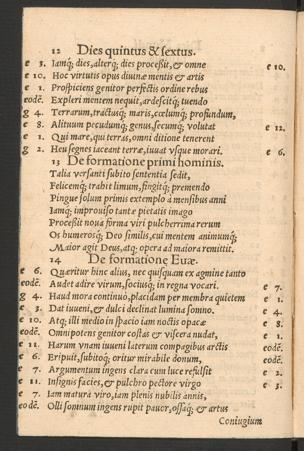 12 Dies quintus & sextus.
e 3. Iamq; dies, alterq; dies processit, & omne e 10.
e 10. Hoc virtutis opus diuinæ mentis & artis
e 1. Prospiciens genitor perfectis ordine rebus
eodē. Expleri mentem nequit, ardescitq; tuendo
g 4. Terrarum, tractusq; maris, cœlumq; profundum,
e 8. Alituum pecudumq; genus, secumq; volutat e 12.
e 1. Qui mare, qui terras, omni ditione tenerent
g 2. Heu segnes iaceant terræ, iuuat vsque morari. e 6.
13 De formatione primi hominis.
Talia versanti subito sententia sedit,
Felicemq; trahit limum, fingitq; premendo
Pingue solum primis extemplo à mensibus anni
Iamq; improuiso tantæ pietatis imago
Processit noua forma viri pulcherrima rerum
Os humerosq; Deo similis, cui mentem animumq;
Maior agit Deus, atq; opera ad maiora remittit.
14 De formatione Euæ.
e 6. Quæritur hinc alius, nec quisquam ex agmine tanto
eodē. Audet adire virum, sociusq; in regna vocari. e 7.
g 4. Haud mora continuo, placidam per membra quietem e 1.
e 3. Dat iuueni, & dulci declinat lumina somno. e 4.
e 10. Atq; illi medio in spacio iam noctis opacæ e 8.
eodē. Omnipotens genitor costas & viscera nudat, e 1.
e 11. Harum vnam iuueni laterum compagibus arctis eodē.
e 6. Eripuit, subitoq; oritur mirabile donum, eodē.
e 7. Argumentum ingens clara cum luce refulsit e 2.
e 11. Insignis facies, & pulchro pectore virgo e 3.
e 7. Iam matura viro, iam plenis nubilis annis,
eodē. Olli somnum ingens rupit pauor, ossaq; & artus
Coniugium